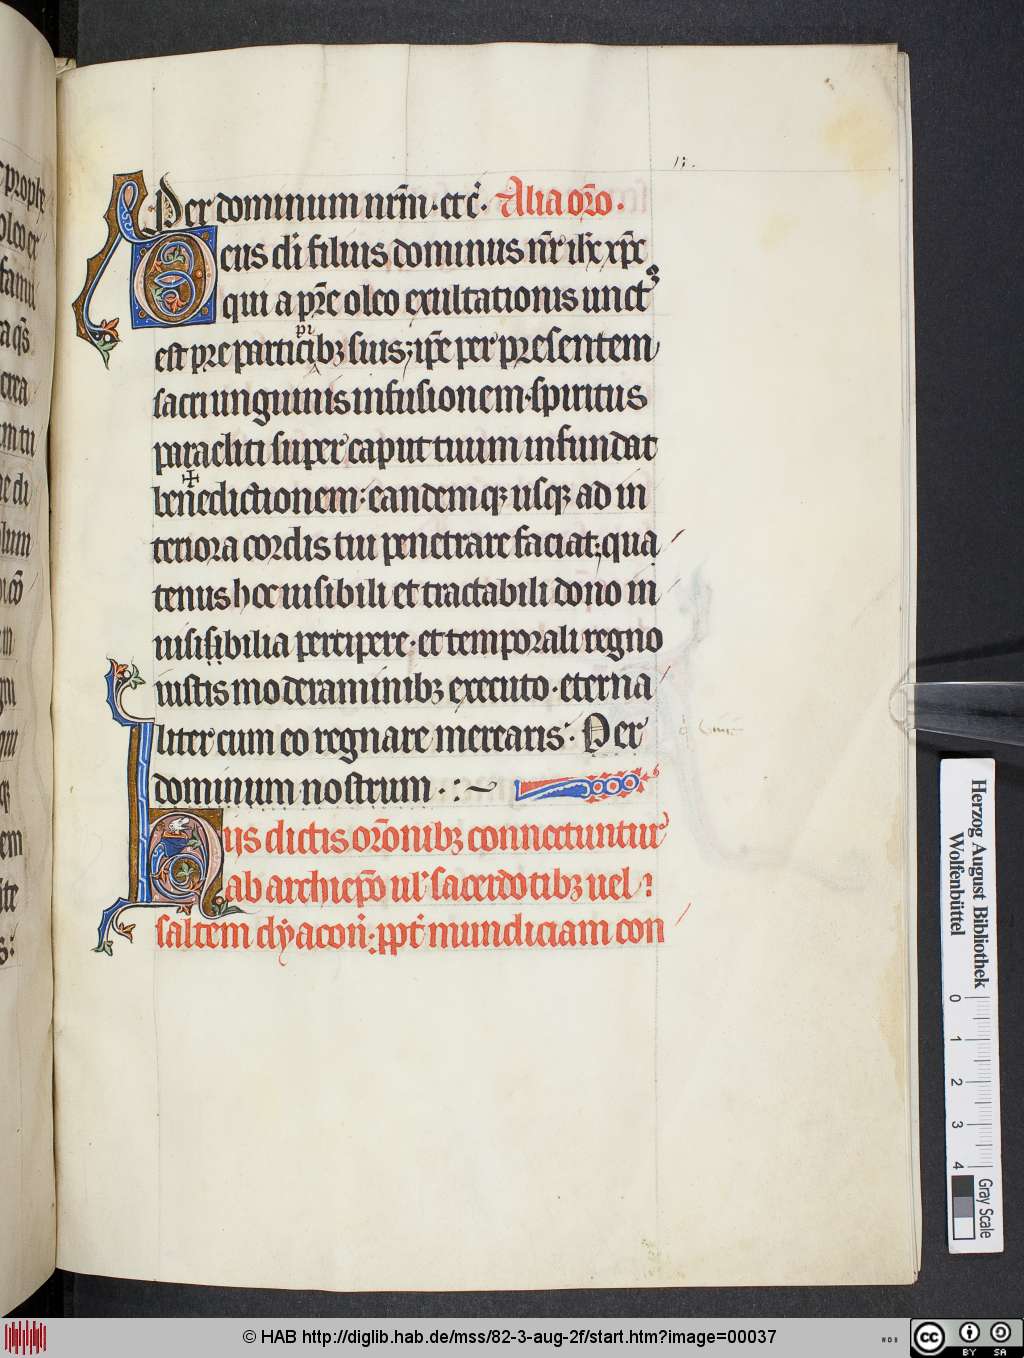 13.
Per dominum nr̄m· etc̄· Alia oro̅.
Deus di̅ filius dominus nr̄ ih̅c xp̅c
qui a pr̄e oleo exultationis unctꝰ
est pre particibꝫ suis; ip̅e per presentem
pi
sacri unguinis infusionem· spiritus
paracliti super caput tuum infundat
bene✝dictionem: eandemqꝫ usqꝫ ad in
teriora cordis tui penetrare faciat; qua
tenus hoc uisibili et tractabili dono in
uisisibilia percipere· et temporali regno
iustis moderaminibꝫ executo· eterna
liter cum eo regnare merearis: Per
dominum nostrum·:~
Hijs dictis oro̅nibꝫ connectuntur
ab archiepo̅ ul' sacerdotibꝫ uel
saltem dẏaconi; ppt' mundiciam con
prophe
oleo er
famu
ra qs̄
cerea
m tu
ne di
olum
co̅
em
Herzog August Bibliothek
Wolfenbüttel
0 1 2 3 4
Gray Scale
© HAB http://diglib.hab.de/mss/82-3-aug-2f/start.htm?image=00037
WDB
cc BY SA